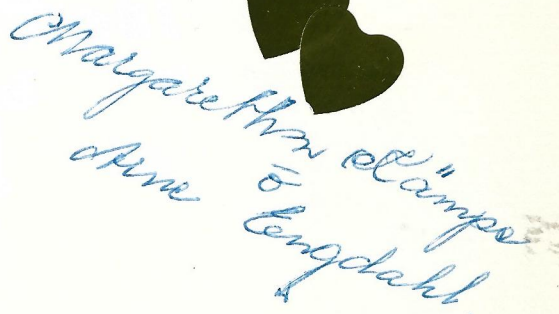 Margaretha Kämpe
ō
Arne Engdahl